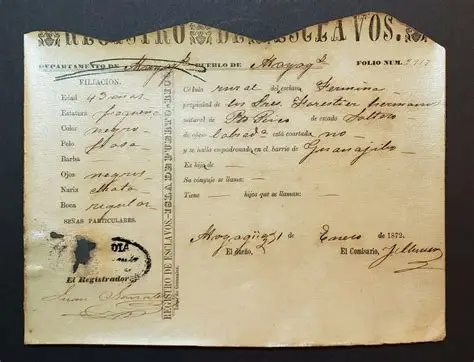 REGISTRO DE ESCLAVOS.
DEPARTAMENTO DE Mayagz PUEBLO DE Mayagz FOLIO NUM.
FILIACION.
Edad 43 años
Estatura pequeña
Color negro
Pelo pasa
Barba —
Ojos negros
Nariz chata
Boca regular
SEÑAS PARTICULARES.
El Registrador
REGISTRO DE ESCLAVOS—ISLA DE PUERTO-RICO
Cédula rural del esclavo Fermina
propiedad de los Sres Forestier hermanos
natural de Pto Rico de estado Soltera
de oficio labrada está coartada no
y se halla empadronada en el barrio de Guanajibo
Es hijo de —
Su cónyuge se llama: —
Tiene — hijos que se llaman: —
Mayagüez 1 de Enero de 1872.
El dueño, El Comisario,